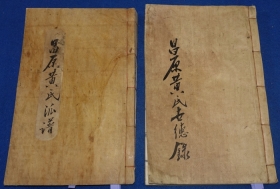 昌原黄氏派譜
昌原黄氏世德錄